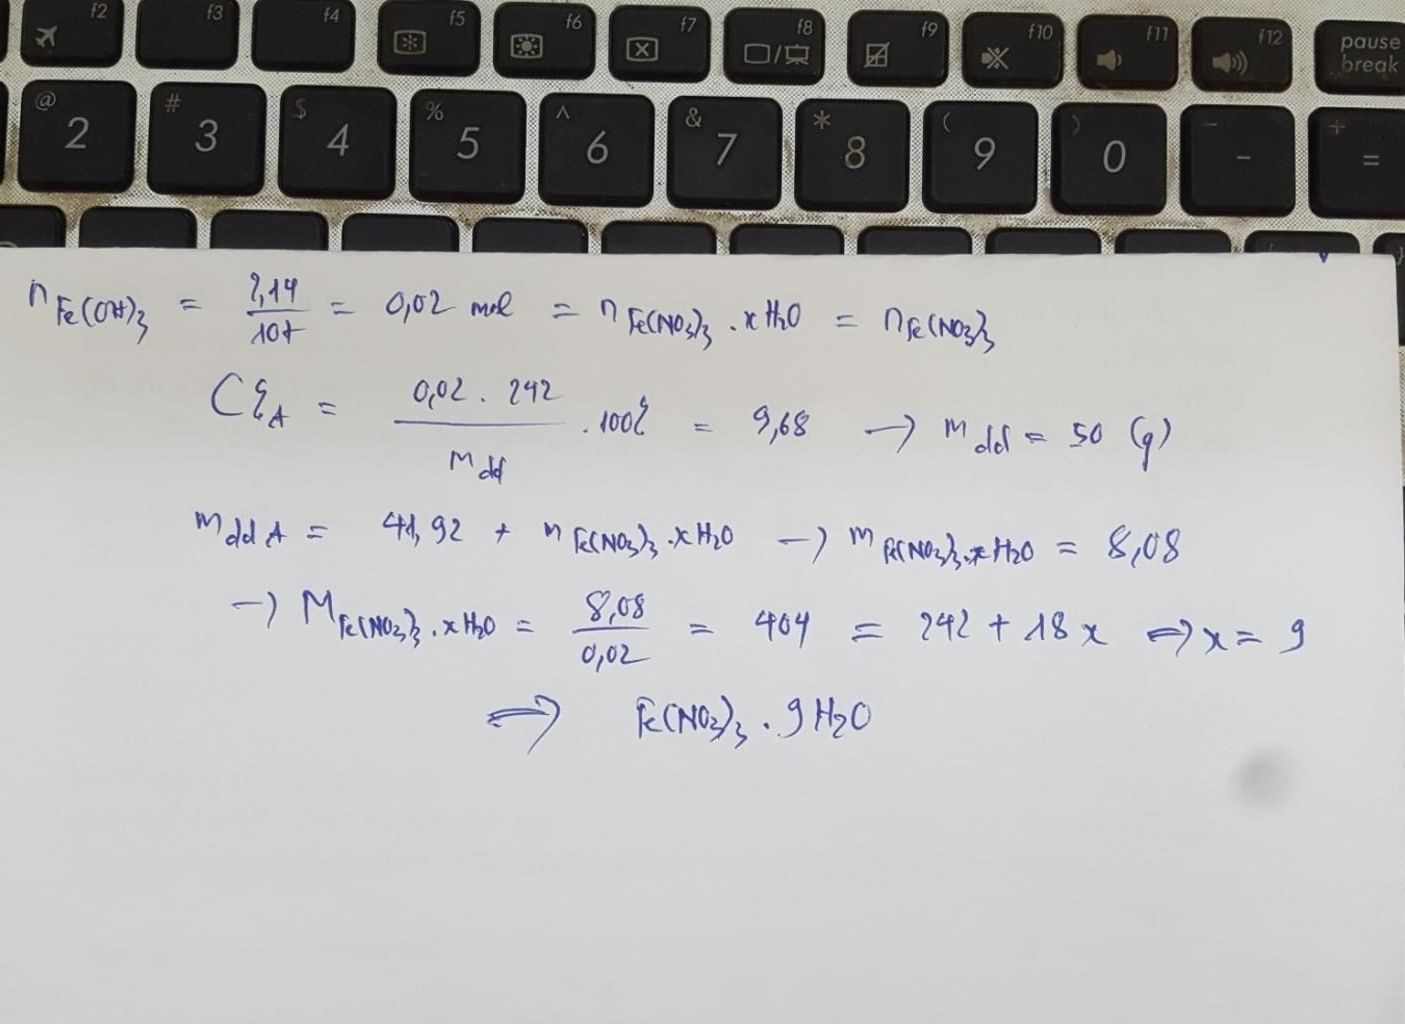 f2 f3 f4 f5 f6 f7 f8 f9 f10 f11 f12 pause break
@ 2 # 3 $ 4 % 5 ^ 6 & 7 * 8 ( 9 ) 0 _ - + =
n Fe(OH)3 = 2,14/107 = 0,02 mol = n Fe(NO3)3 . xH2O = n Fe(NO3)3
C%A = 0,02 . 242 / mdd . 100% = 9,68 → mdd = 50 (g)
mdd A = 41,92 + m Fe(NO3)3 . xH2O → m Fe(NO3)3 . xH2O = 8,08
→ M Fe(NO3)3 . xH2O = 8,08/0,02 = 404 = 242 + 18x ⇒ x = 9
⇒ Fe(NO3)3 . 9H2O